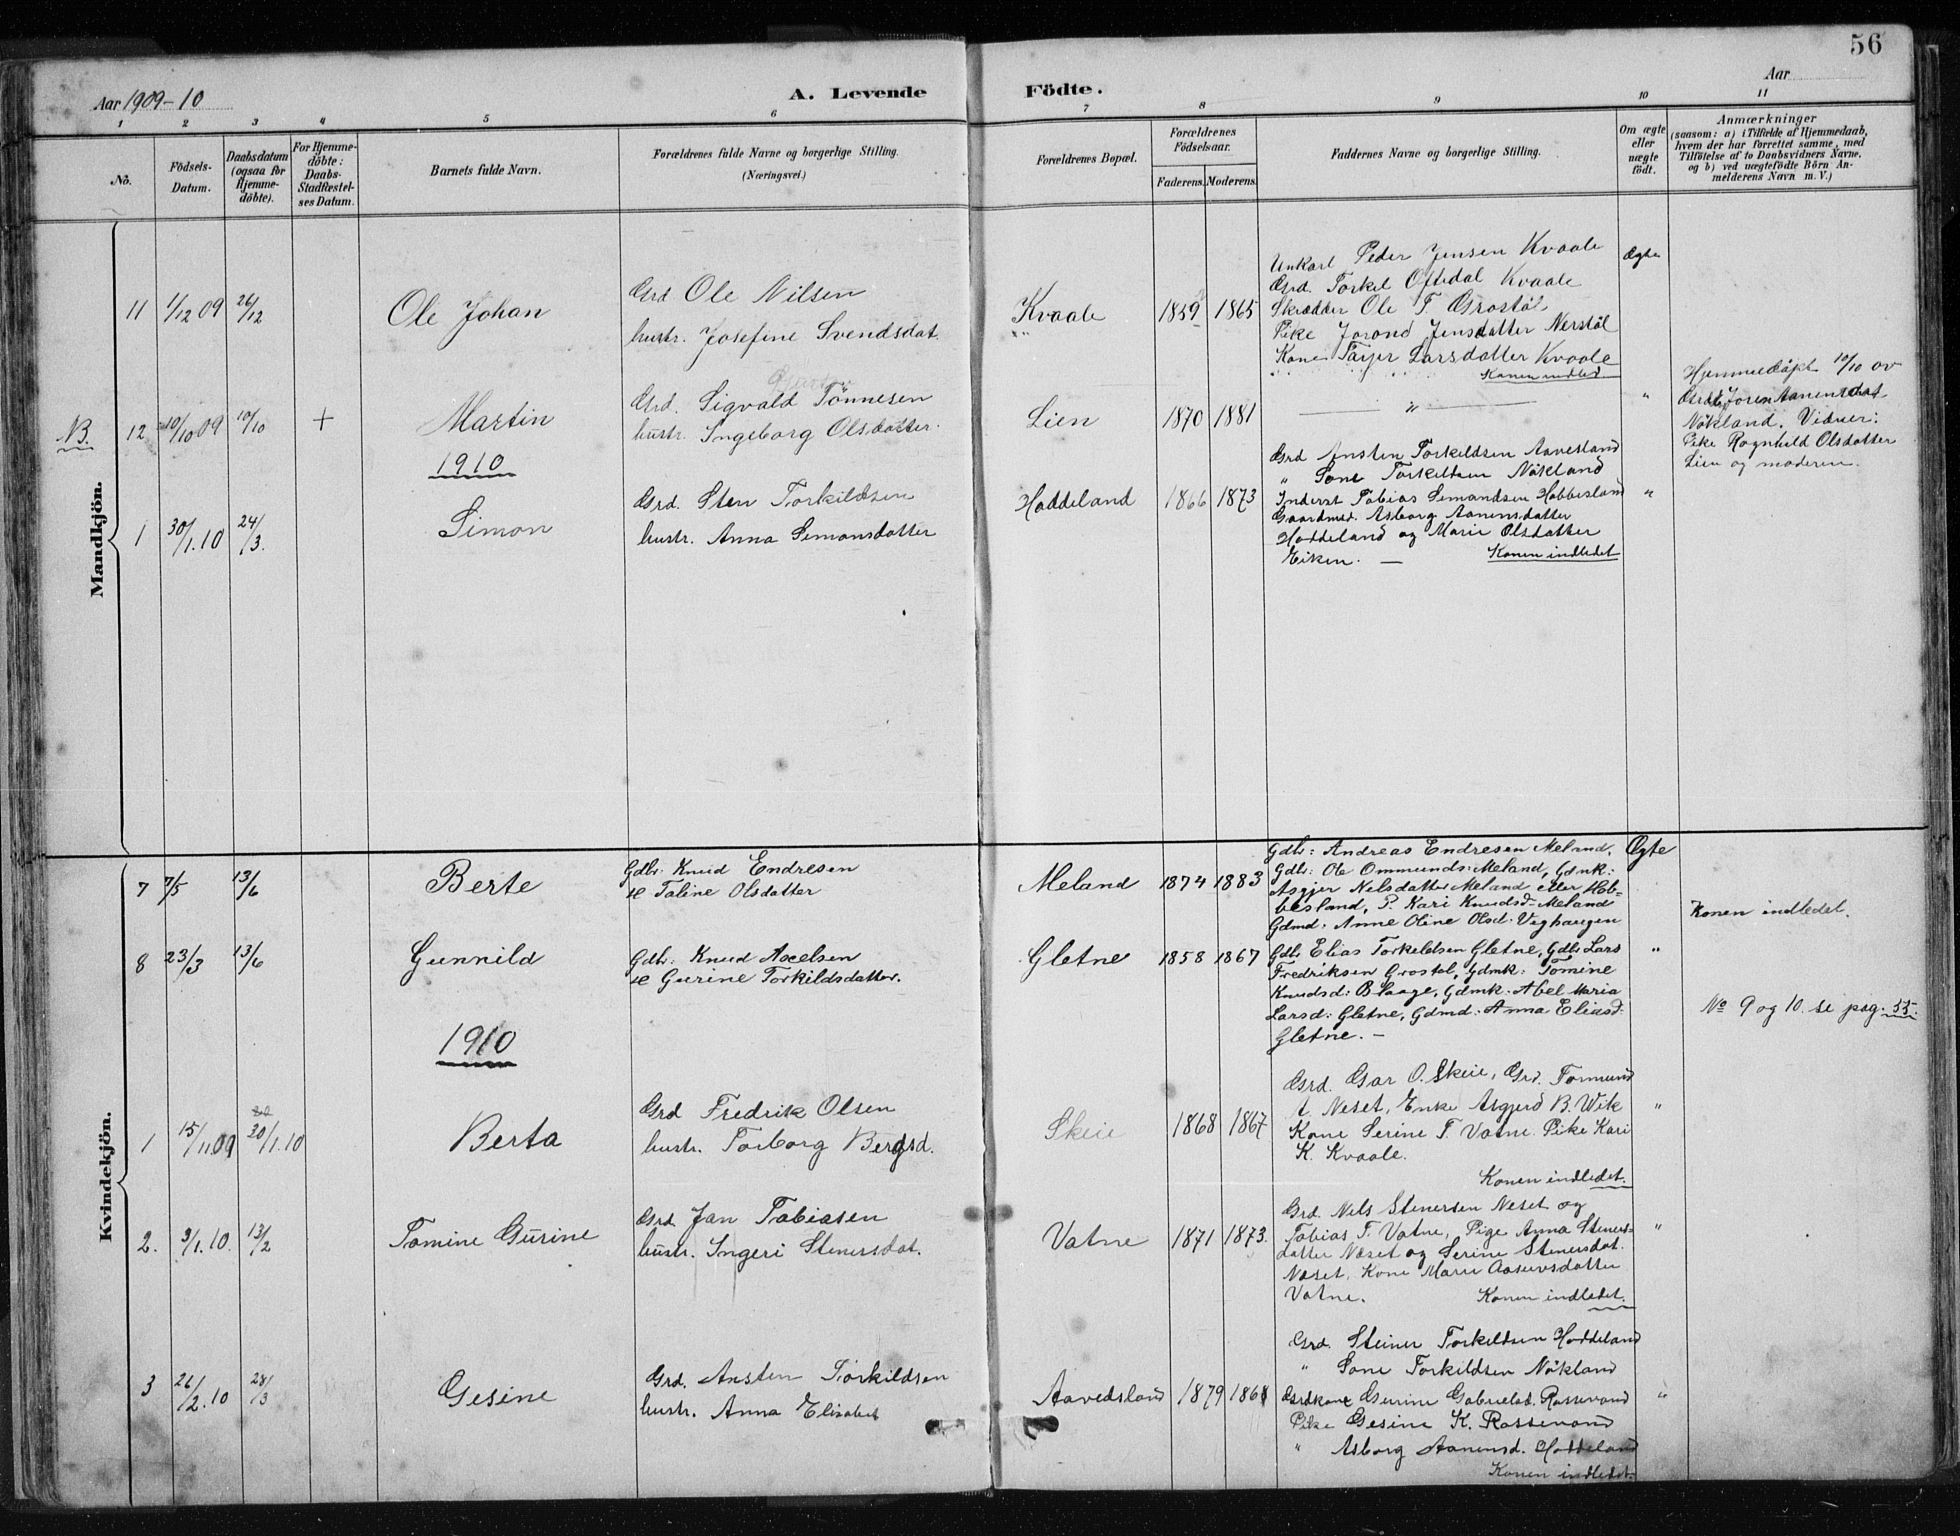 56
Aar 1909-10
A. Levende
Födte.
Aar
1 2 3 4 5 6 7 8 9 10 11
No.
Födsels-
Datum.
Daabsdatum
(ogsaa for
Hjemme-
döbte).
For Hjemme-
döbte:
Daabs-
Stadfæstel-
ses Datum.
Barnets fulde Navn.
Forældrenes fulde Navne og borgerlige Stilling.
(Næringsvei.)
Forældrenes Bopæl.
Forældrenes
Födselsaar.
Faderens.
Moderens.
Faddernes Navne og borgerlige Stilling.
Om ægte
eller
uægte
födt.
Anmærkninger
(saasom: a) i Tilfælde af Hjemmedaab,
hvem der har forrettet samme, med
Tilföielse af to Daabsvidners Navne,
og b) ved uægtefödte Börn An-
melderens Navn m. V.)
Mandkjön.
11 1/12 09 26/12
Ole Johan
Grd Ole Nilsen
hustr. Josefine Svendsdat.
Kvaale
1859 1865
Unkarl Peder Jensen Kvaale
Grd. Torkel Oftedal Kvaale
Skrædder Ole T. Grostöl
Pike Jorond Jensdatter Nerstöl
Kone Tarjer Larsdatter Kvaale
Konen indled.
Ægte
NB.
12 10/10 09 10/10 +
Martin
Grd. Sigvald Tönnesen
hustr. Ingeborg Olsdatter.
Lien
1870 1881
"
"
Hjemmedöpt 10/10 av
Joren Aanensdat
Nökland. Vidner:
Pike Rognhild Olsdatter
Lien og moderen.
1910
1 30/1.10 24/3.
Simon
Grd. Sten Torkildsen
hustr. Anna Simonsdatter
Hoddeland
1866 1873
Grd Ansten Torkildsen Aavesland
" Sone Torkildsen Nökland
Inderst Tobias Simondsen Hobbesland
Gaardmd. Asborg Aanensdatter
Hoddeland og Marie Olsdatter
Eiken. — Konen indledet
"
Kvindekjön.
7 7/5 13/6
Berte
Gdbr. Knud Endresen
og Taline Olsdatter
Meland
1874 1883
Gdbr: Andreas Endresen Meland,
Gdbr: Ole Ommunds: Meland, Gdmk:
Asgjer Nelsdatter Meland eller Hob-
besland, P. Kari Knudsd. Meland
Gdmd: Anne Oline Olsd. Veghaugen
Ægte
Konen indledet.
8 23/3 13/6
Gunnild
Gdbr: Knud Axelsen
og Gurine Torkildsdatter.
Gletne
1858 1867
Gdbr Elias Torkeldsen Gletne, Gdbr Lars
Fredriksen Grostøl, Gdmk: Tomine
Knudsd: Blaage, Gdmk: Abel Maria
Larsd: Gletne, Gdmd: Anna Eliasd:
Gletne. —
"
No 9 og 10. se pag. 55.
1910
1 15/11.09 30/1.10
Berta
Grd Fredrik Olsen
hustr. Torborg Bergsd.
Skeie
1868 1867
Grd. Gar O. Skeie, Grd. Tormund
A. Neset, Enke Asgjerd B. Wik
Kone Serine T. Vatne. Pike Kari
K. Kvaale.
Konen indledet.
"
2. 3/1.10. 13/2
Tomine Gurine
Grd. Jan Tobiasen
hustr. Ingeri Stenersdat.
Vatne
1871 1873.
Grd. Nils Stenersen Neset og
Tobias T. Vatne, Pige Anna Steners-
datter Neset og Serine Stenersdat.
Neset, Kone Marie Aasuvsdatter
Vatne. Konen indledet.
"
3 26/2.10 28/3
Gesine
Grd. Ansten Torkildsen
hustr. Anna Elisabet
Aavedsland
1879 1868
Grd. Steiner Torkeldsen Hoddeland
" Sone Torkildsen Nökland
Grdkone Gurine Gabrielsd. Rossevand
Pike Gesine K. Rossevand
" Asborg Aanensd. Hoddeland
Konen indledet.
"